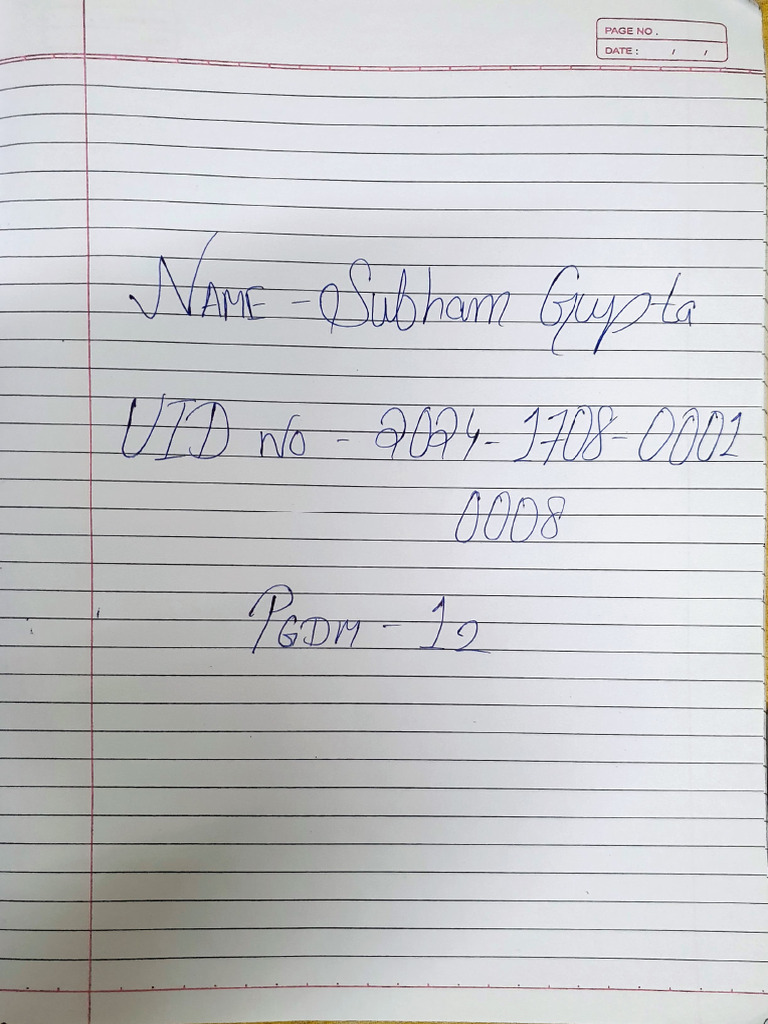 PAGE NO.
DATE: / /
NAME - Subham Gupta
UID No - 2024-1708-0001
0008
PGDM - 12